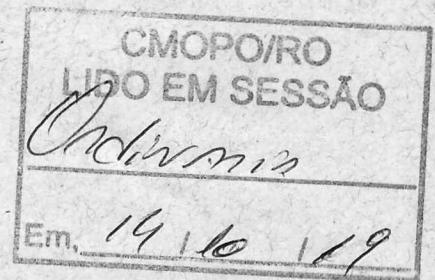 CMOPO/RO
LIDO EM SESSÃO
Ordinária
Em, 14 / 10 / 19